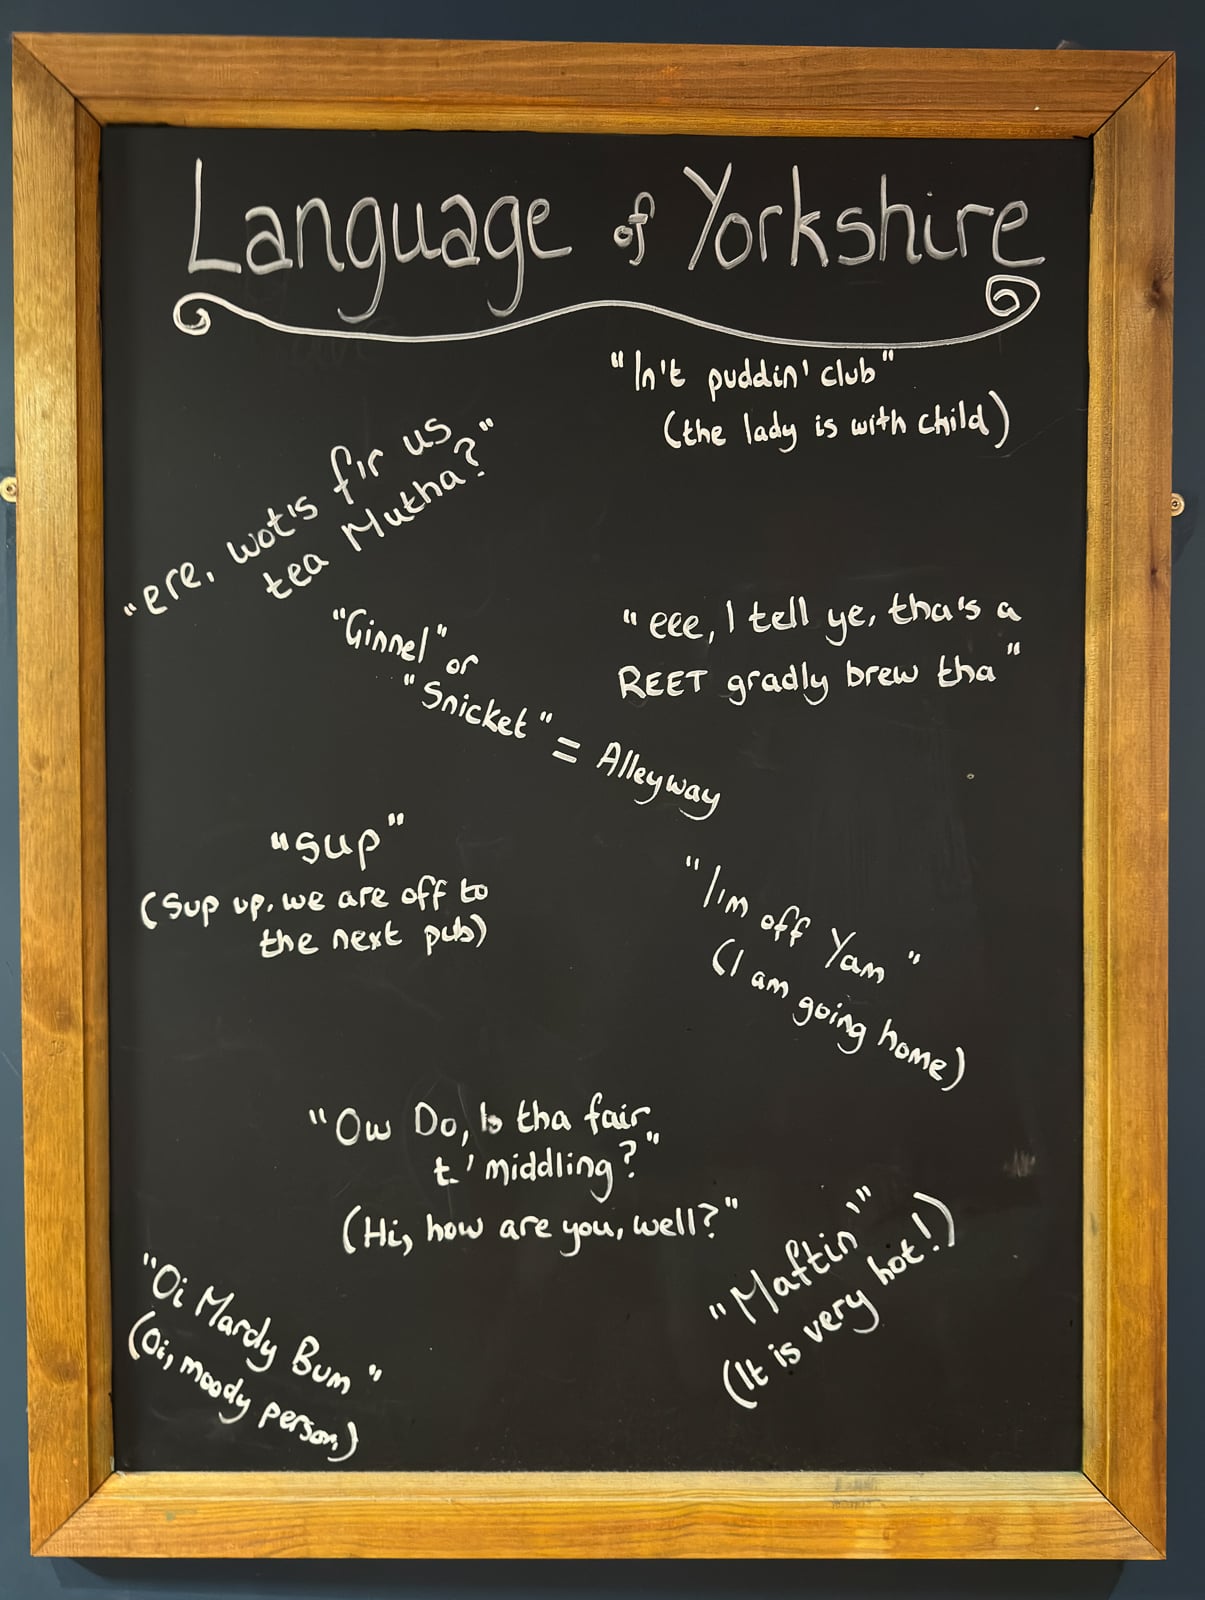 Language of Yorkshire
"In't puddin' club"
(the lady is with child)
"ere, wot's fir us
tea Mutha?"
"Ginnel" or
"Snicket" = Alleyway
"eee, I tell ye, tha's a
REET gradly brew tha"
"Sup"
(Sup up, we are off to
the next pub)
"I'm off Yam"
(I am going home)
"Ow Do, Is tha fair
t' middling?"
(Hi, how are you, well?"
"Maftin'"
(It is very hot!)
"Oi Mardy Bum"
(Oi, moody person)